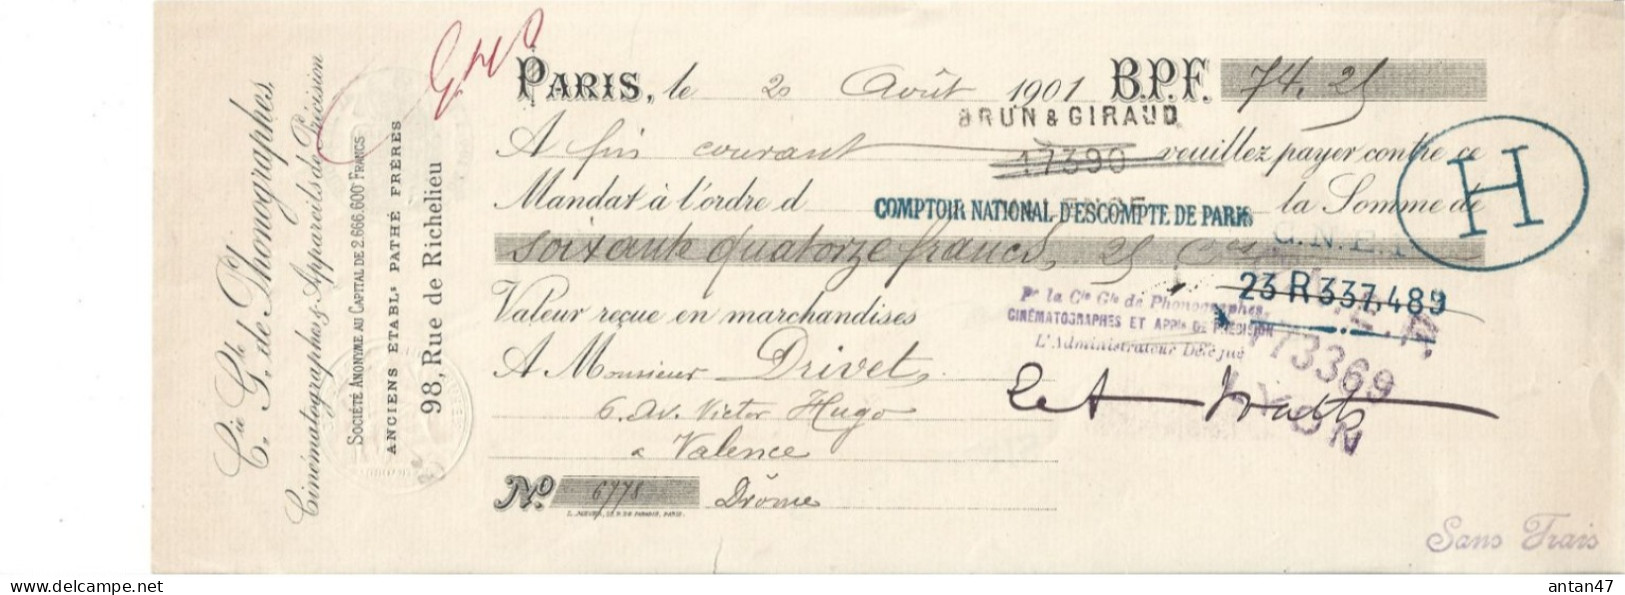 Cie Gle de Phonographes,
Cinématographes & Appareils de Précision
SOCIÉTÉ ANONYME AU CAPITAL DE 2.666.600 FRANCS
ANCIENS ETABLs PATHÉ FRÈRES
98, Rue de Richelieu
PARIS, le 20 Août 1901 B.P.F. 74,25
BRUN & GIRAUD
A fin courant 17390 veuillez payer contre ce
Mandat à l'ordre d COMPTOIR NATIONAL D'ESCOMPTE DE PARIS la Somme de
H
soixante quatorze francs, 25 ces
23 R 337.489
Valeur reçue en marchandises
Pr la Cie Gle de Phonographes,
CINÉMATOGRAPHES ET APPls DE PRÉCISION
L'Administrateur Délégué
173369
LYON
A Monsieur Drivet,
6, Av. Victor Hugo
a Valence
No 6778 Drôme
Sans Frais
antan47